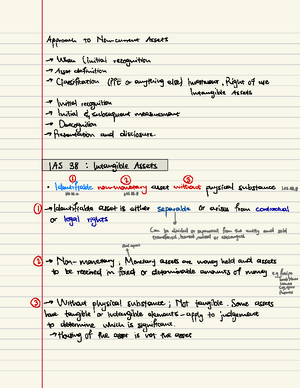 Approach to Non-current Assets
→ When (Initial recognition
→ Asset definition
→ Classification (PPE or anything else) Investment, Right of use
Intangible Assets
→ Initial recognition
→ Initial & subsequent measurement
→ Derecognition
→ Presentation and disclosure.
IAS 38 : Intangible Assets
① ② ③
• Identifiable non-monetary asset without physical substance
① → Identifiable asset is either separable or arises from contractual
or legal rights
Can be divided or separated from the entity and sold
transferred, licensed, rented or exchanged
② → Non-monetary; Monetary assets are money held and assets
to be received in fixed or determinable amounts of money
③ → Without physical substance; Not tangible. Some assets
have tangible or intangible elements - apply to judgement
to determine which is significant.
→ Housing of the asset is not the asset